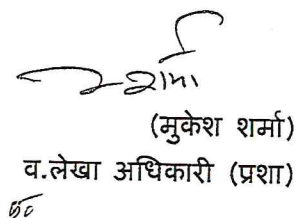 शर्मा
(मुकेश शर्मा)
व.लेखा अधिकारी (प्रशा)